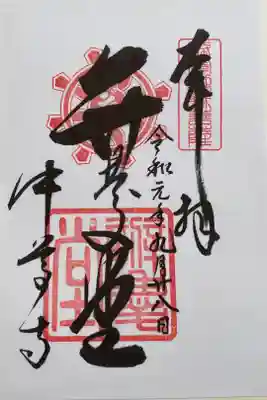 奉拝
令和元年九月廿八日
弁慶堂
中尊寺